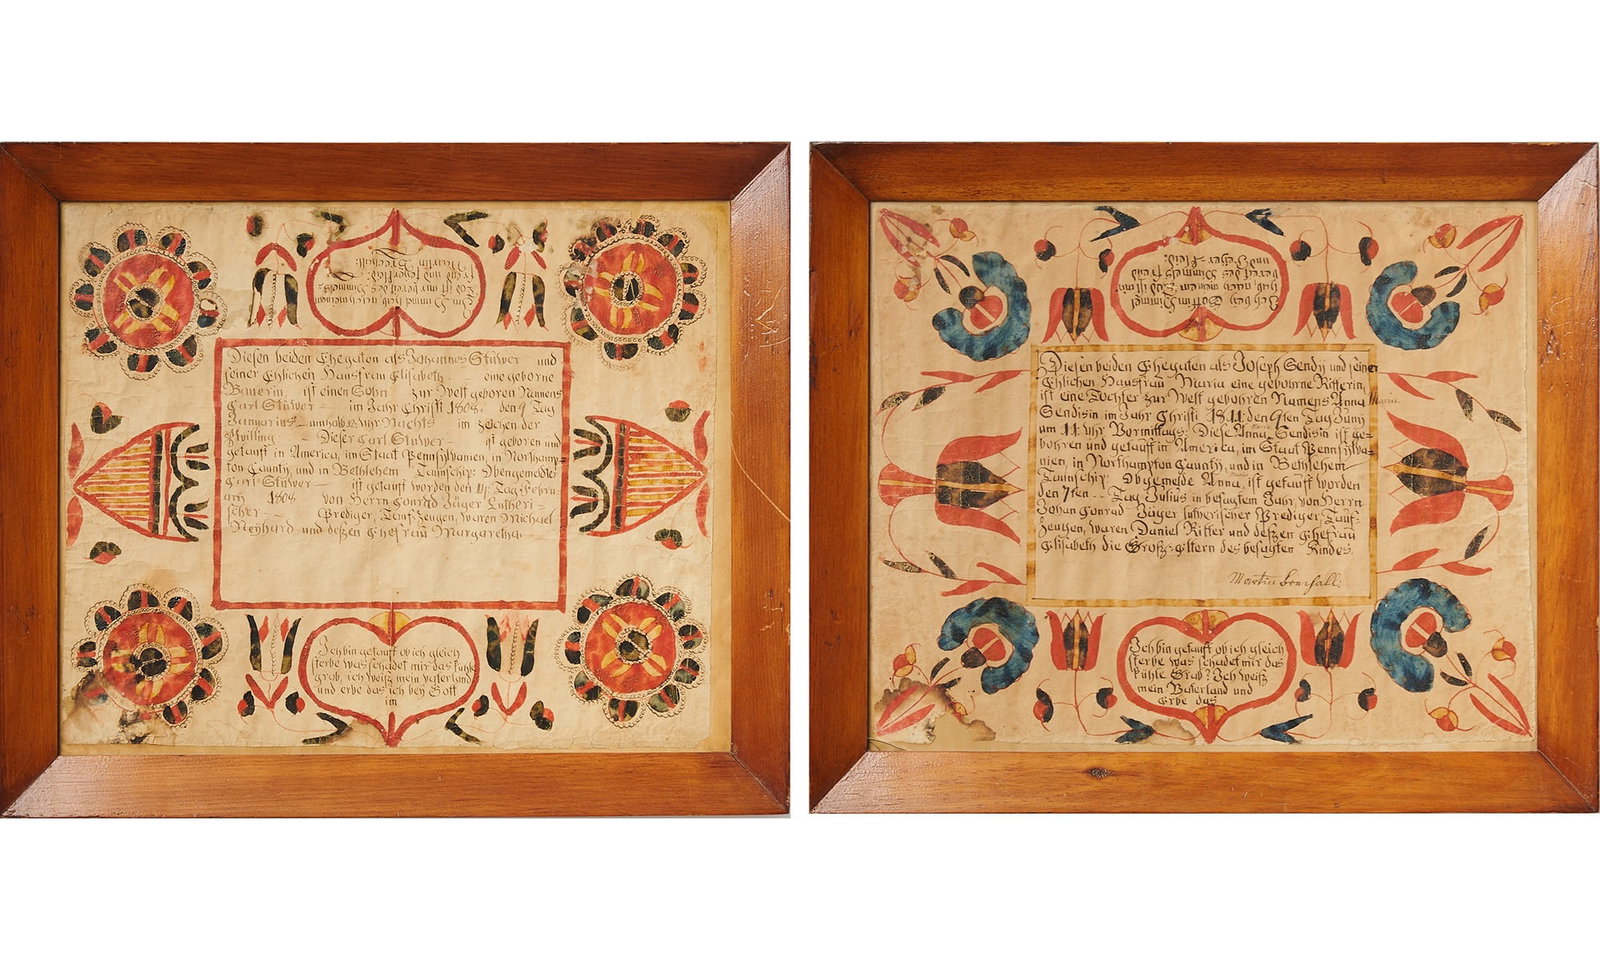 Diesen beiden Ehegaten als Johannes Stüwer und
seiner Ehlichen Hausfrau Elisabeth eine geborne
Bauerin ist einen Sohn zur Welt geboren Namens
Carl Stüwer im Jahr Christi 1808, den 9 Tag
Januarius umhalb 12 uhr Nachts im zeichen der
Zwilling Dieser Carl Stüwer ist geboren und
getauft in America, im Staat Pennsylvanien, in Northamp-
ton County und in Bethlehem Taunschip: Obengemelder
Carl Stüwer ist getauft worden den Tag Febru-
arÿ 1808 von Herrn Conrad Jäger Lutheri-
scher Prediger, Tauf-Zeugen, waren Michael
Neyhard und deßen Ehefrau Margaretha.
Ich bin getauft ob ich gleich
sterbe was schadet mir das kühle
grab, ich weiß mein vaterland
und erbe das ich bey Gott
im
Ich bey Gott im Himmel
hab
nach
Diesen beiden Ehegaten als Joseph Sendÿ und seiner
Ehlichen Hausfrau Maria eine gebohrne Ritterin,
ist eine Tochter zur Welt gebohren Namens Anna Maria
Sendisin im Jahr Christi 1811 den 9ten Tag Junÿ
um 11 Uhr Vormittags: Diese Anna Maria Sendisin ist ge-
bohren und getauft in America, im Staat Pennsylva-
nien, in Northampton Caunty, und in Bethlehem
Taunschip: Obgemelde Anna, ist getauft worden
den 7ten Tag Julius in besagtem Jahr von Herrn
Johan Conrad Jäger lutherischer Prediger, Tauf-
zeugen, waren Daniel Ritter und deßzen Ehefrau
Elisabeth die Groß-Eltern des besagten Kindes.
Martin
Ich bin getauft ob ich gleich
sterbe was schadet mir das
kühle Grab? Ich weiß
mein Vaterland und
Erbe das